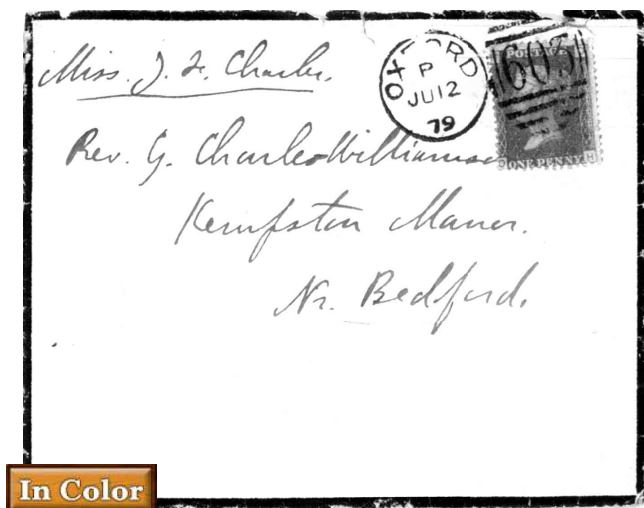 Miss. J. F. Charles.
OXFORD
P
JU 12
79
603
POSTAGE
ONE PENNY
H
Rev. G. Charles Williamson
Kempston Manor.
Nr. Bedford.
In Color